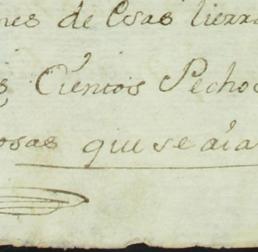 nes de Esas tierra
s Cientos Pechos
osas que se aia